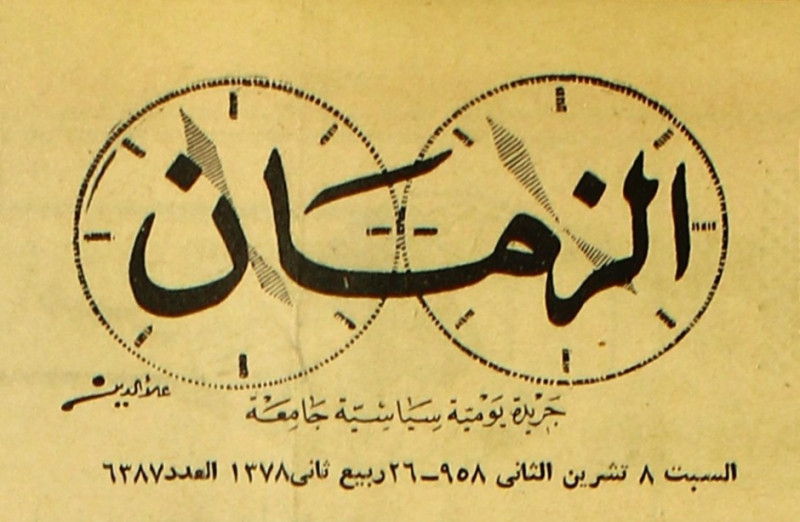 الزمان
علاء الدين
جريدة يومية سياسية جامعة
السبت ٨ تشرين الثانى ٩٥٨ــ٢٦ربيع ثانى١٣٧٨ العدد٦٣٨٧